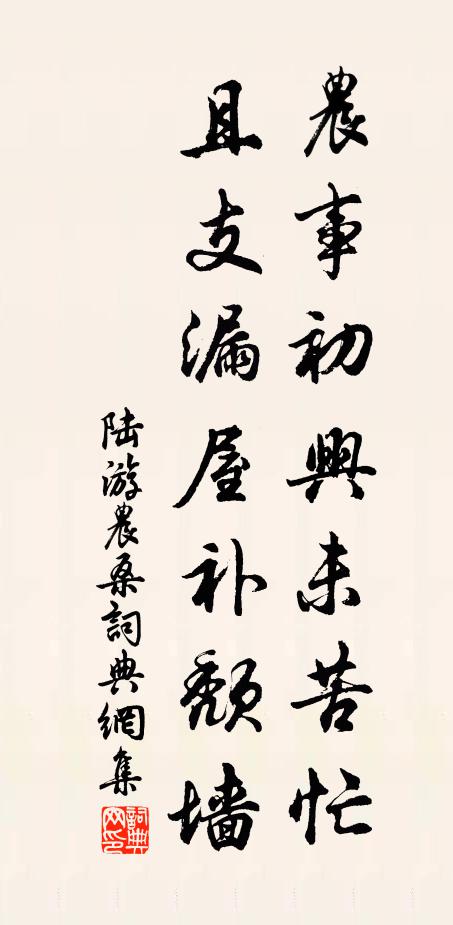 農事初興未苦忙
且支漏屋补頽墻
陆游農桑詞典網集
詞典网印